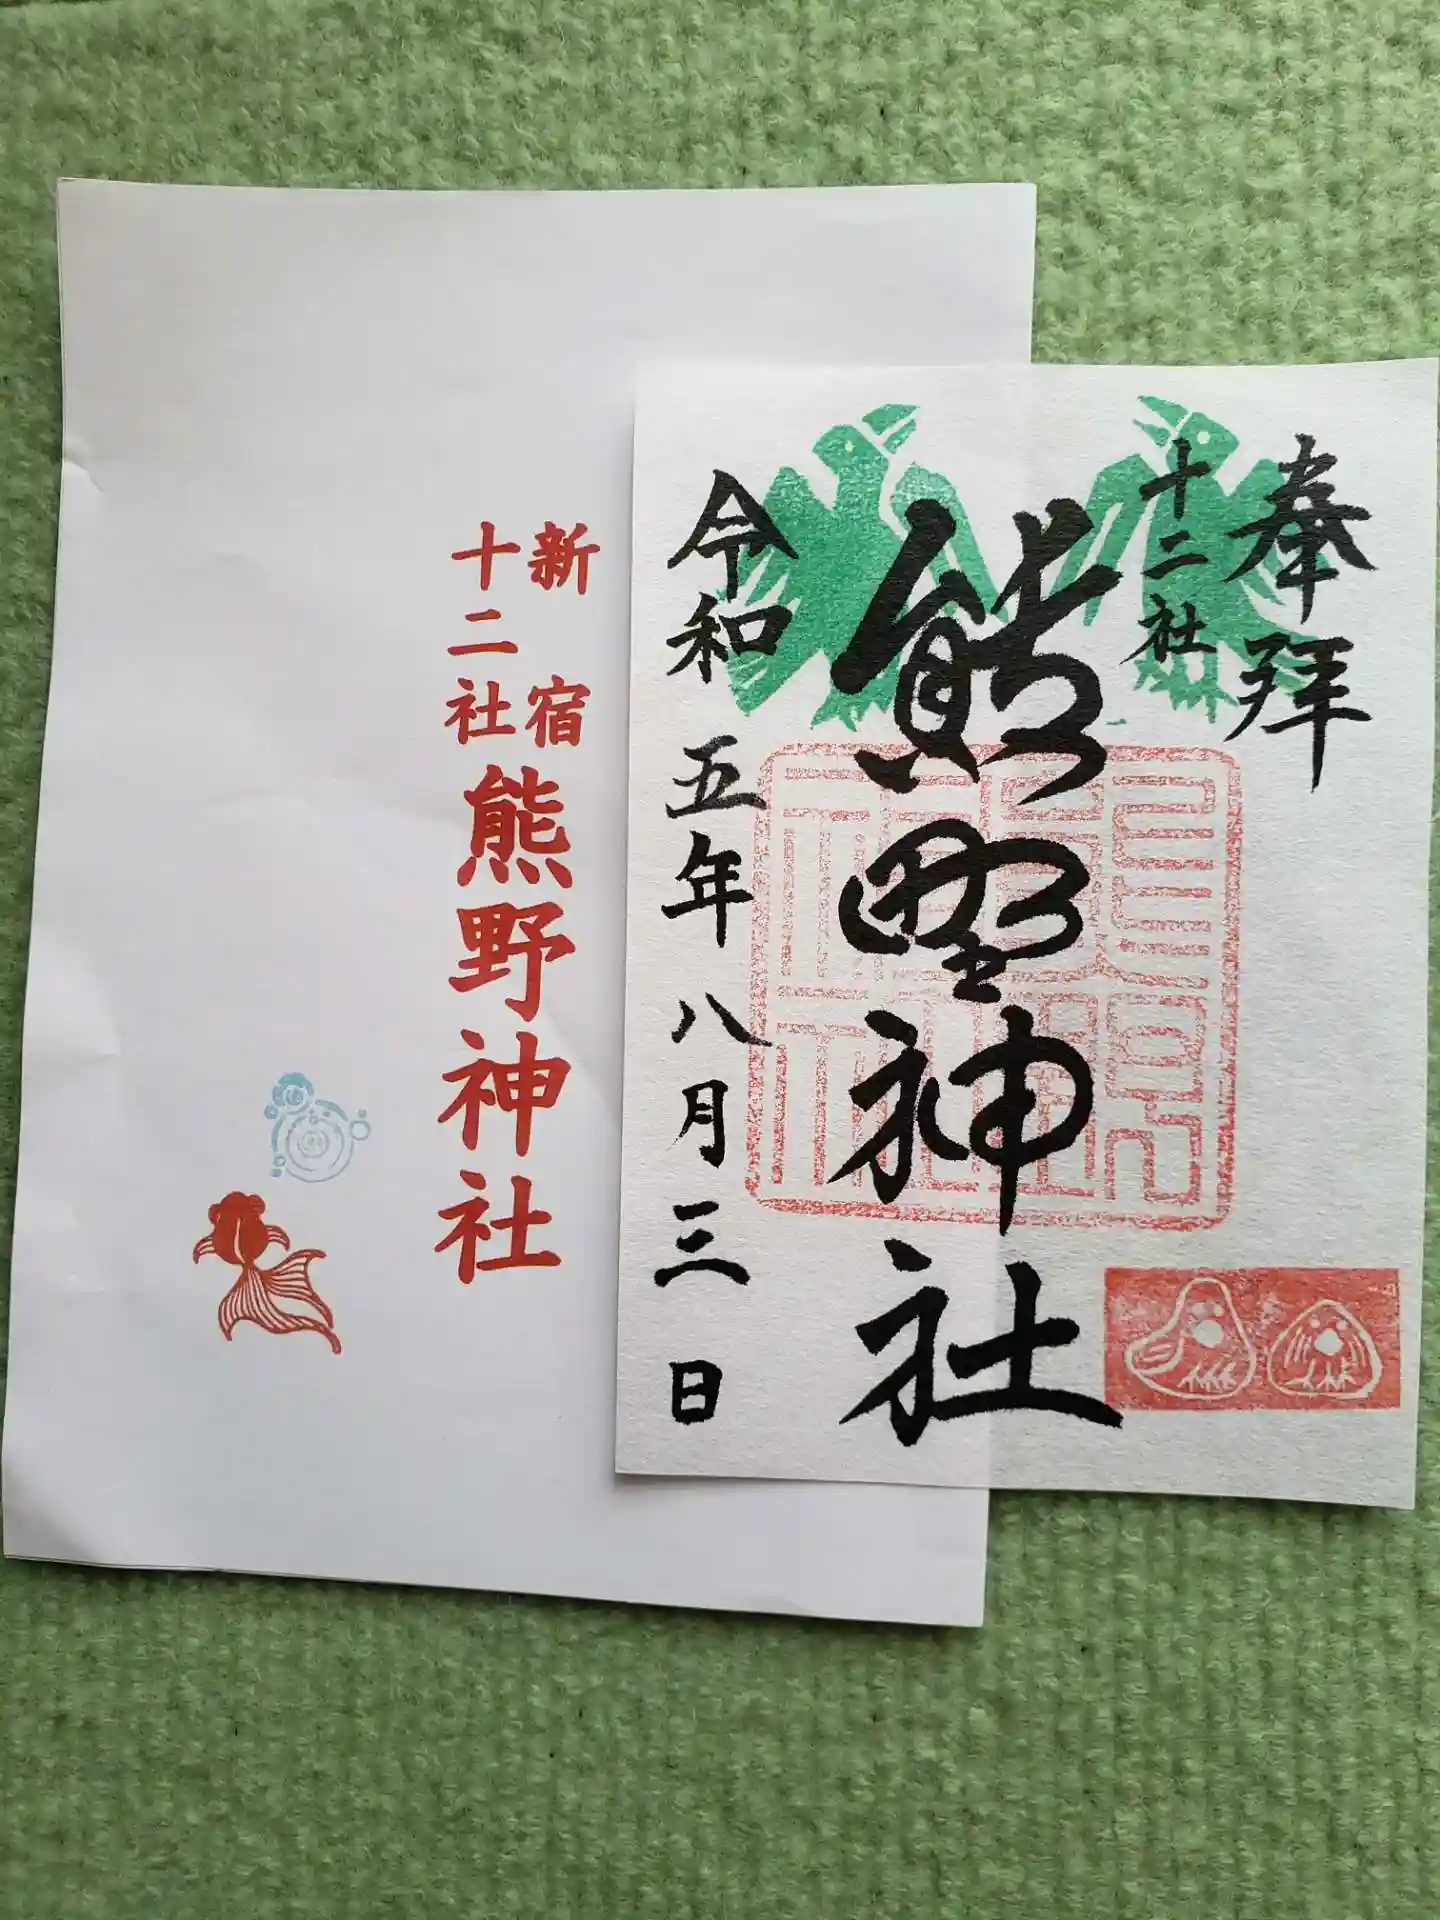 奉拝
十二社
熊野神社
令和五年八月三日
新宿
十二社
熊野神社